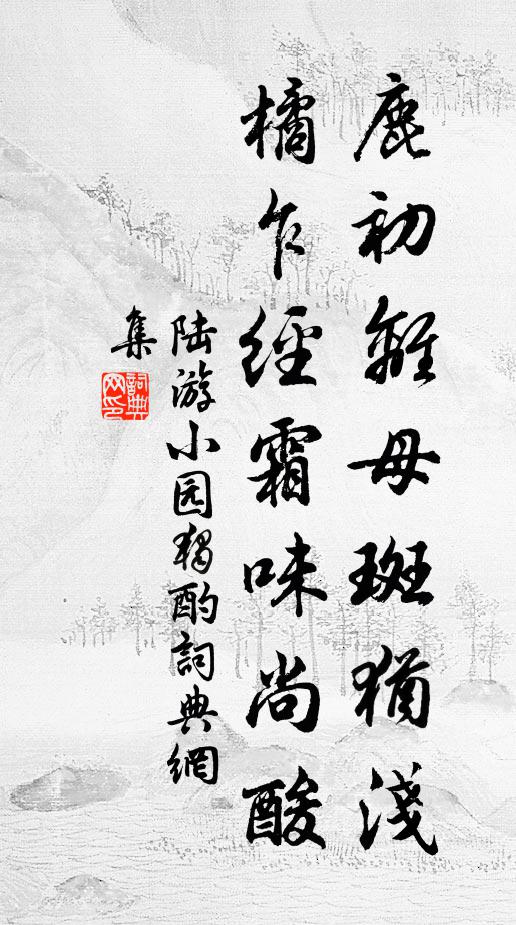 鹿初離母斑猶淺
橘乍經霜味尚酸
陆游小园独酌詞典網
集
詞典
网印